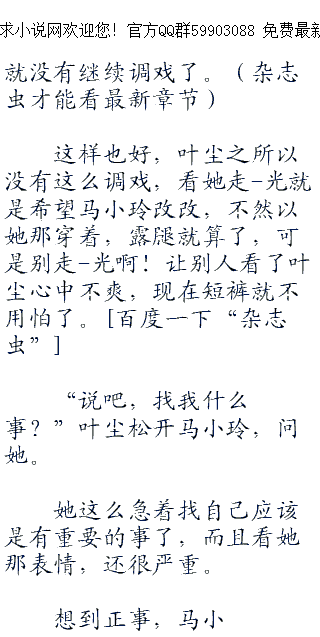 求小说网欢迎您！官方QQ群59903088 免费最新
就没有继续调戏了。（杂志
虫才能看最新章节）
这样也好，叶尘之所以
没有这么调戏，看她走-光就
是希望马小玲改改，不然以
她那穿着，露腿就算了，可
是别走-光啊！让别人看了叶
尘心中不爽，现在短裤就不
用怕了。[百度一下“杂志
虫”]
“说吧，找我什么
事？”叶尘松开马小玲，问
她。
她这么急着找自己应该
是有重要的事了，而且看她
那表情，还很严重。
想到正事，马小